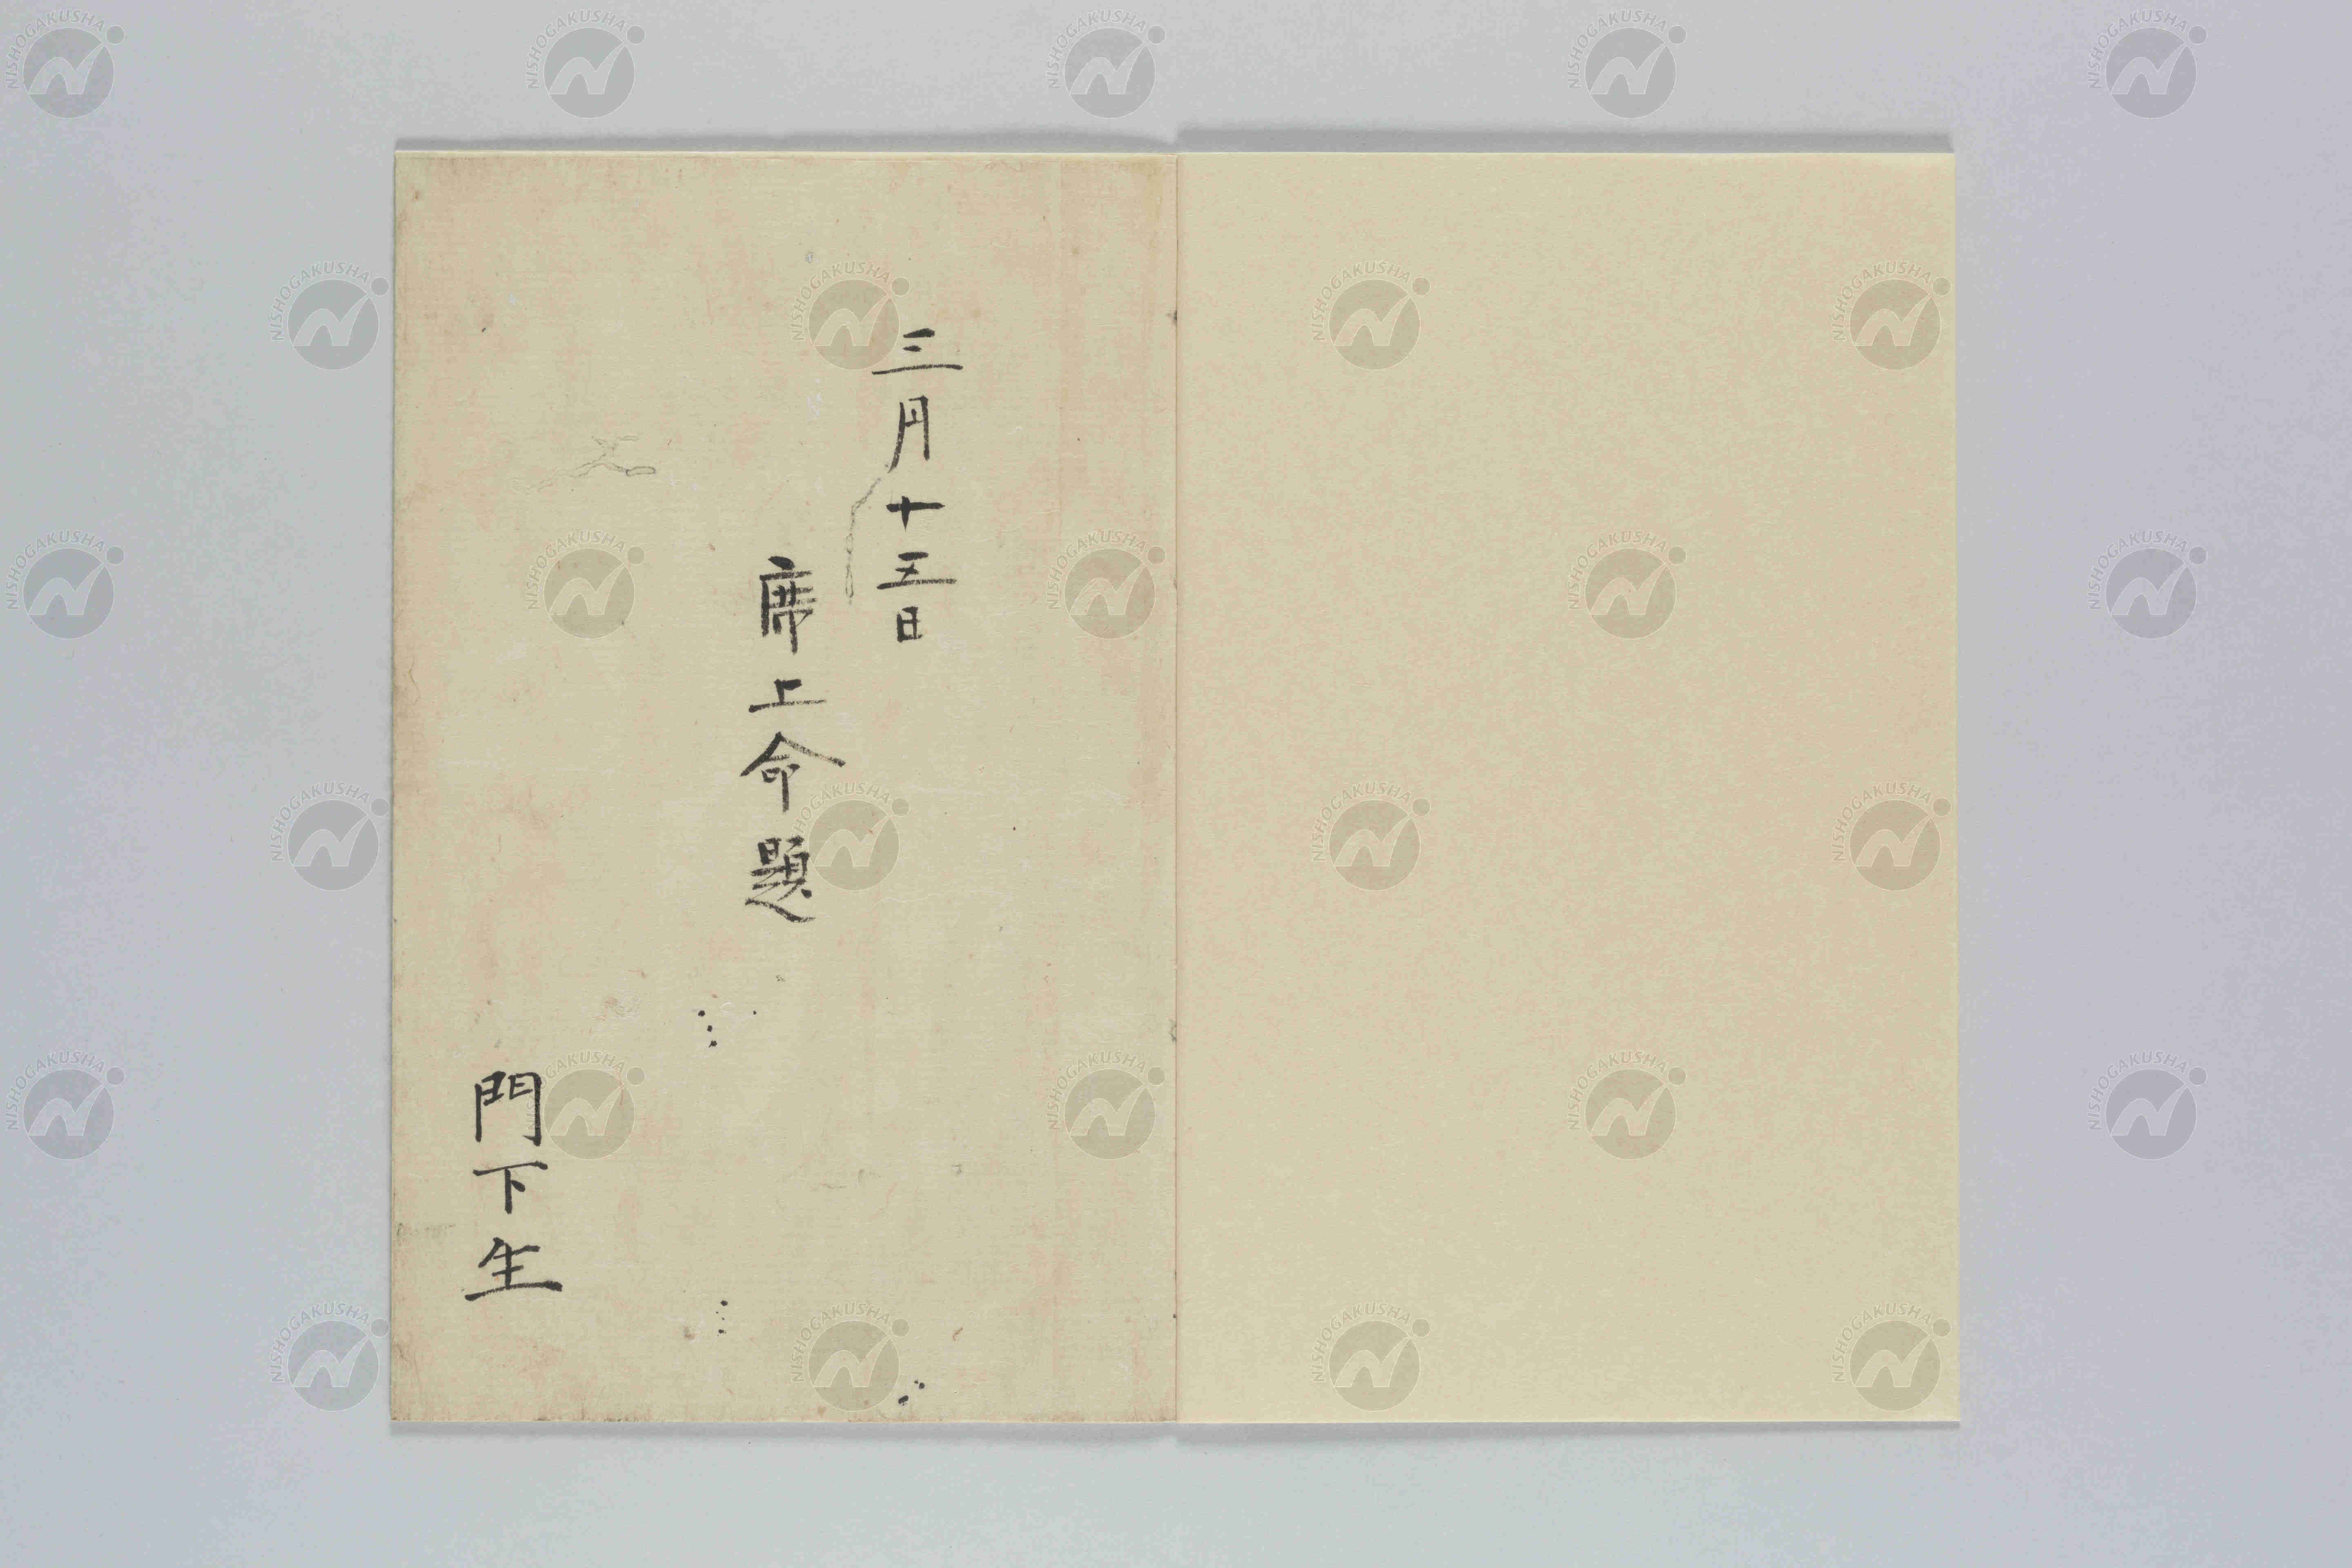 三月十五日
席上命題
門下生
NISHOGAKUSHA